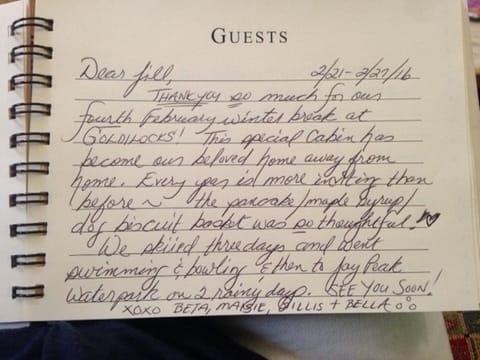 GUESTS
Dear Jill, 2/21-2/27/16
THANK YOU SO much for our
fourth February winter break at
GOLDILOCKS! This special Cabin has
become our beloved home away from
home. Every year is more inviting than
before ~ the pancake/maple syrup/
dog biscuit basket was so thoughtful!
We skiied three days and went
swimming & bowling & then to Jay Peak
Waterpark on 2 rainy days. SEE YOU SOON!
XOXO BETA, MAISIE, WILLIS + BELLA